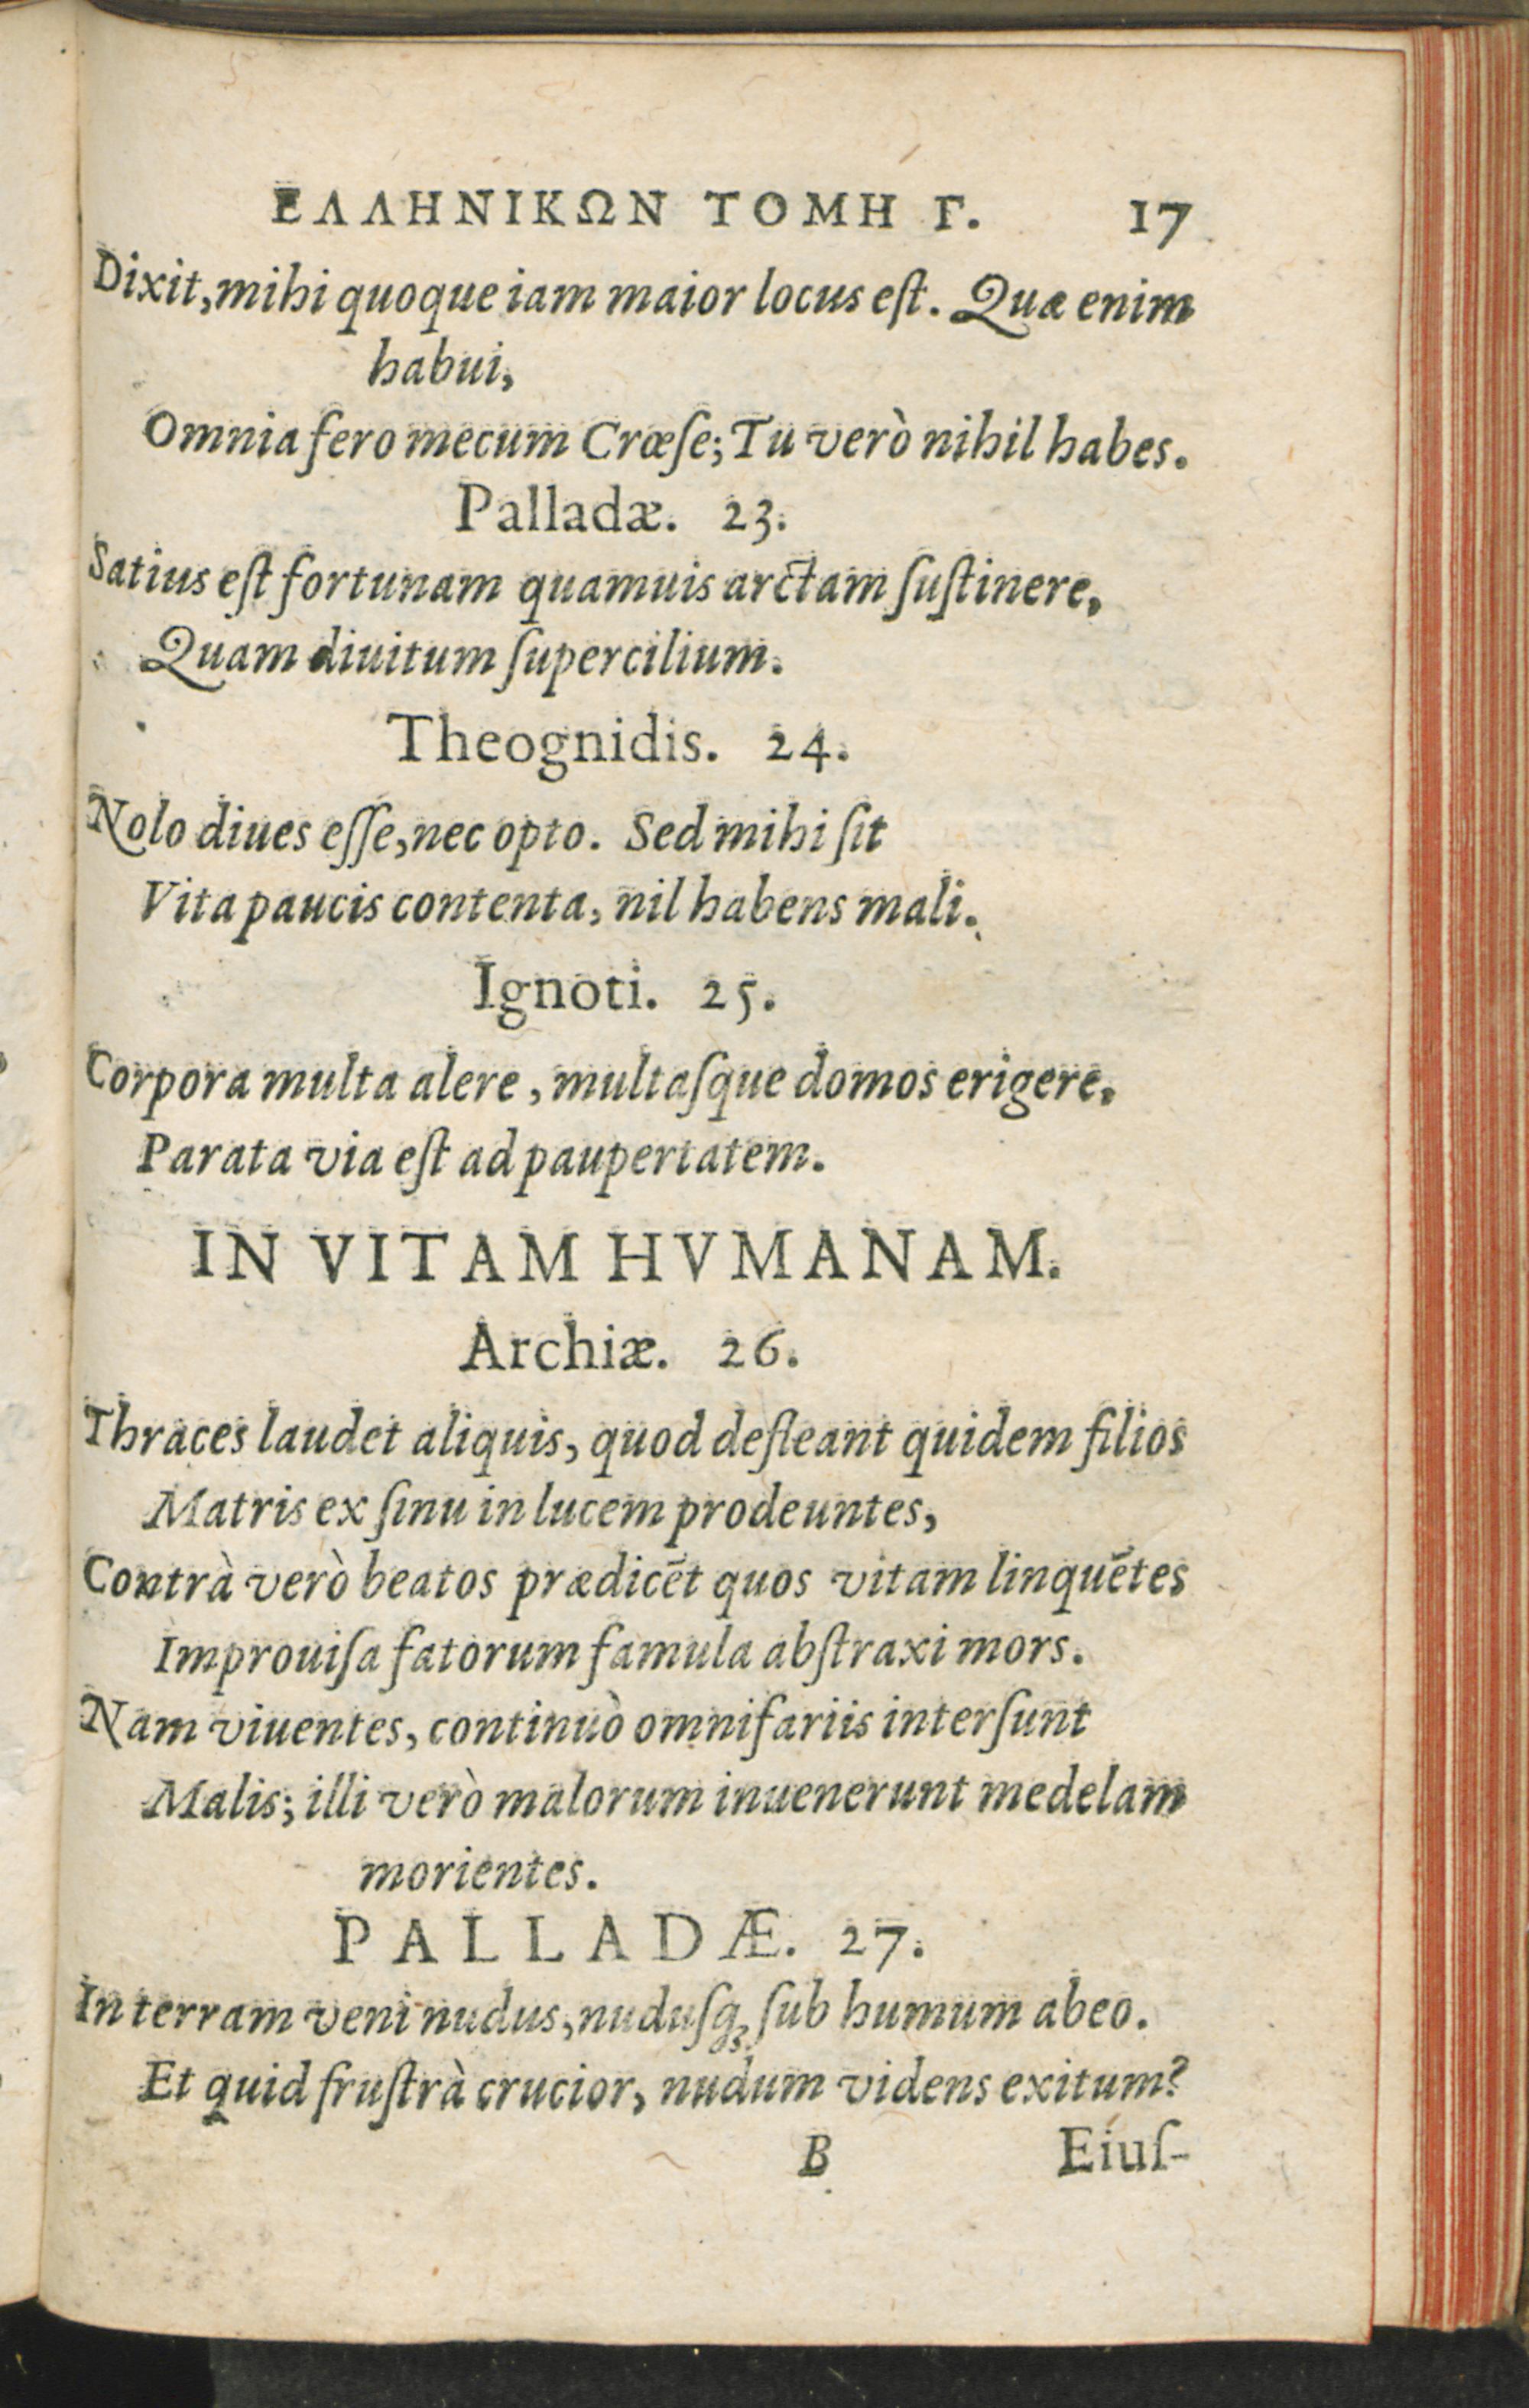 ΕΛΛΗΝΙΚΩΝ ΤΟΜΗ Γ. 17
Dixit, mihi quoque iam maior locus eſt. Quæ enim
habui,
Omnia fero mecum Crœſe; Tu verò nihil habes.
Palladæ. 23.
Satius eſt fortunam quamuis arctam ſuſtinere,
Quam diuitum ſupercilium.
Theognidis. 24.
Nolo diues eſſe, nec opto. Sed mihi ſit
Vita paucis contenta, nil habens mali.
Ignoti. 25.
Corpora multa alere, multaſque domos erigere,
Parata via eſt ad paupertatem.
IN VITAM HVMANAM.
Archiæ. 26.
Thraces laudet aliquis, quod defleant quidem filios
Matris ex ſinu in lucem prodeuntes,
Contrà verò beatos prædicẽt quos vitam linquẽtes
Improuiſa fatorum famula abſtraxi mors.
Nam viuentes, continuò omnifariis interſunt
Malis; illi verò malorum inuenerunt medelam
morientes.
PALLADÆ. 27.
In terram veni nudus, nuduſq; ſub humum abeo.
Et quid fruſtrà crucior, nudum videns exitum?
B Eiuſ-